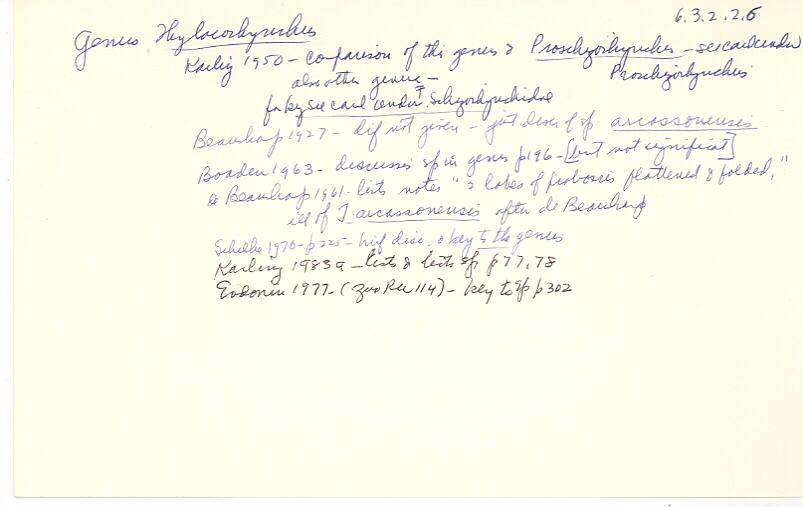 6.3.2.2.6
Genus Thylacorhynchus
Karling 1950 - comparison of this genus & Proschizorhynchus - see card under
also other genera - Proschizorhynchus
for key see card under F. Schizorhynchidae
Beauchamp 1927 - dif not given - just descr of sp arcassonensis
Boaden 1963 - discusses sp in genus p196 - [but not significant]
de Beauchamp 1961 - lists notes "2 lobes of proboscis flattened & folded,"
ill of T. arcassonensis after de Beauchamp
Schilke 1970 - p225 - brief disc. & key to the genus
Karling 1983a - lists & lists sp. p77,78
Evdonin 1977 - (Zoo Rec 114) - key to sp p302